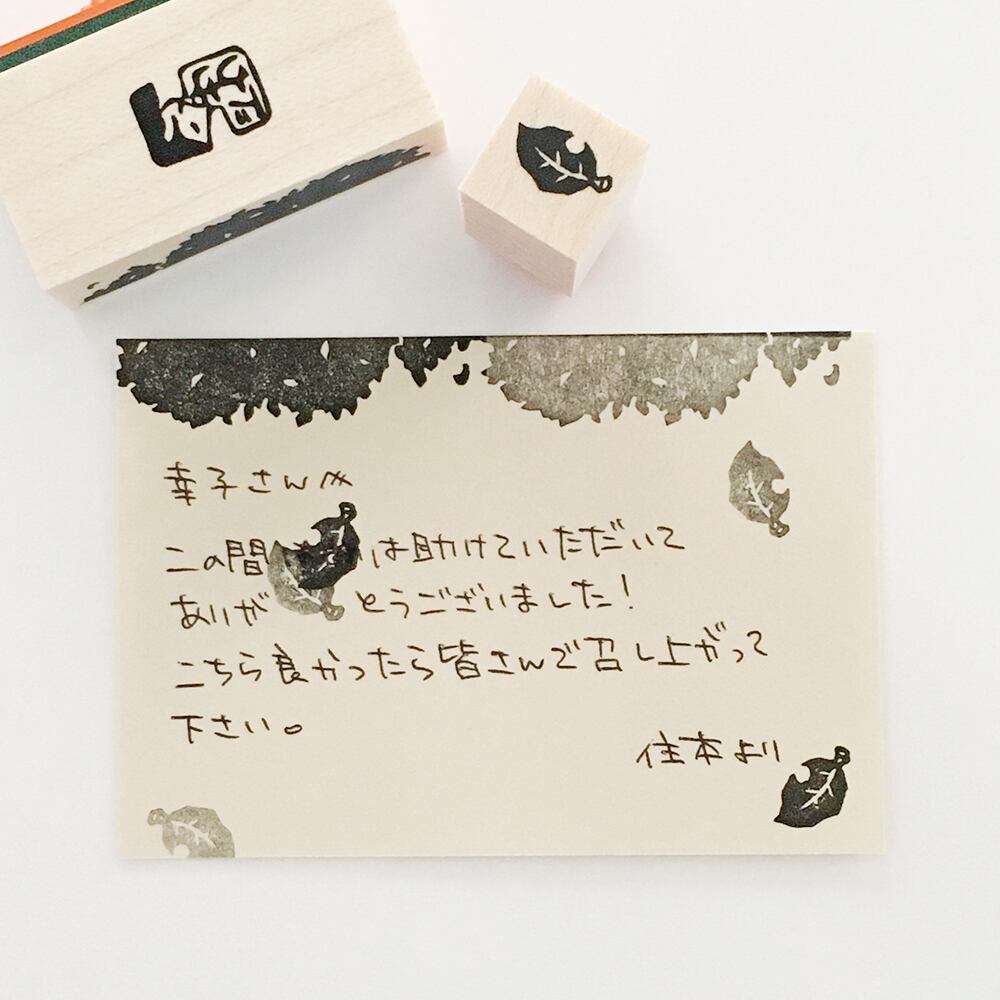 幸子さんへ
この間は助けていただいて
ありがとうございました！
こちら良かったら皆さんで召し上がって
下さい。
住本より